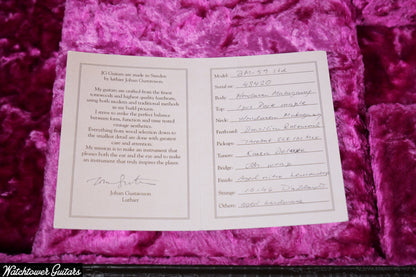 JG Guitars are made in Sweden
by luthier Johan Gustavsson
My guitars are crafted from the finest
tonewoods and highest quality hardware,
using both modern and traditional methods
in my build process.
I strive to strike the perfect balance
between form, function and time tested
vintage aesthetics.
Everything from wood selection down to
the smallest detail are done with greatest
care and attention.
My mission is to make an instrument that
pleases both the ear and the eye and to make
an instrument that truly inspires the player.
Johan Gustavsson
Luthier
Model:
Serial no:
Body: Honduran Mahogany
Top: maple
Neck: Honduran Mahogany
Fretboard: Brazilian Rosewood
Pickups:
Tuners: Kluson Deluxe
Bridge: wrap
Finish: Aged nitro
Strings: 10-46
Others: Aged hardware
Watchtower Guitars